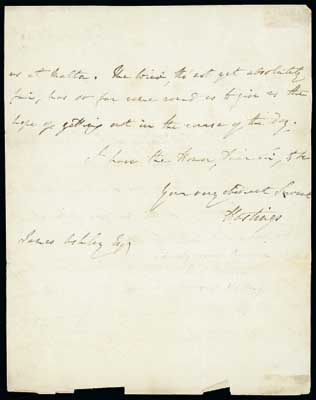 us at Malta. The wind, tho' not yet absolutely
fair, has so far come round as to give us the
hope of getting out in the course of the Day.
I have the Honor, Dear Sir, to be
Your very obedient Servant
Hastings
James Ashley Esqr